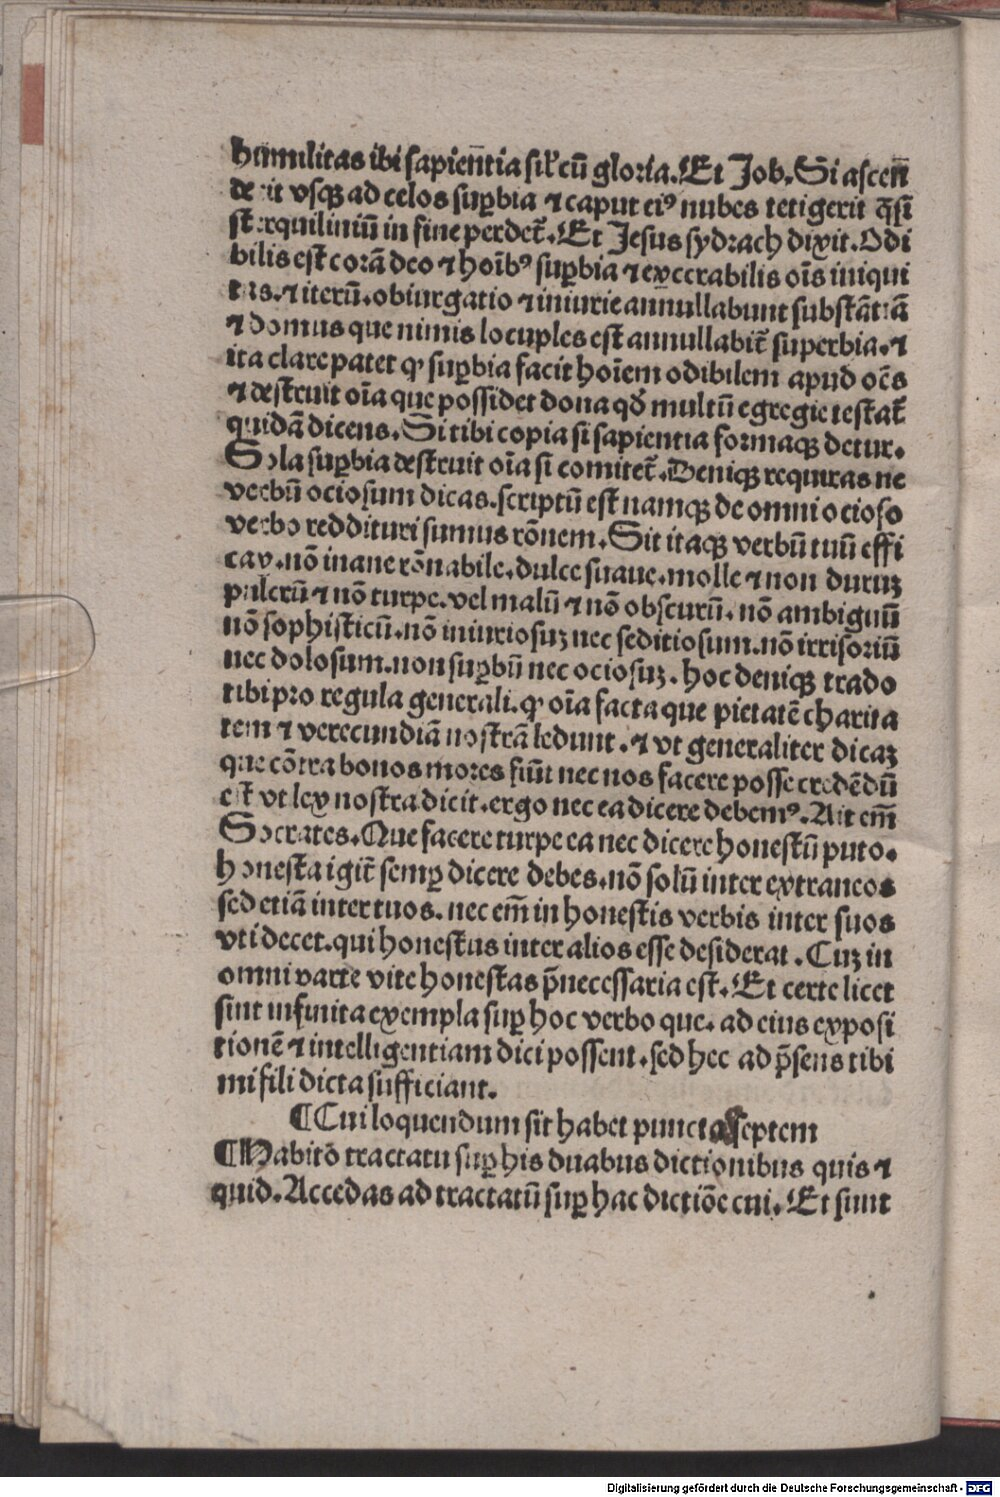 humilitas ibi sapien̄tia sił cū gloria. Et Job. Si ascen̄
de rit vsqꝫ ad celos suꝑbia ⁊ caput eiꝰ nubes tetigerit q̄si
sterquiliniū in fine perdet᷑. Et Jesus sydrach dixit. Odi
bilis est corā deo ⁊ hoībꝰ suꝑbia ⁊ execrabilis oīs iniqui
tas. ⁊ iterū. obiurgatio ⁊ iniurie annullabunt substātiā
⁊ domus que nimis locuples est annullabit᷑ superbia. ⁊
ita clare patet ꝙ suꝑbia facit hoīem odibilem apud oēs
⁊ destruit oīa que possidet dona qd̄ multū egregie testat᷑
quidā dicens. Si tibi copia si sapientia formaqꝫ detur.
Sola suꝑbia destruit oīa si comitet᷑. Deniqꝫ requiras ne
verbū ociosum dicas. scriptū est namqꝫ de omni ocioso
verbo reddituri sumus rōnem. Sit itaqꝫ verbū tuū effi
cax. nō inane rōnabile. dulce suaue. molle ⁊ non duruꝫ
pulcrū ⁊ nō turpe. vel malū ⁊ nō obscurū. nō ambiguū
nō sophisticū. nō iniuriosuꝫ nec seditiosum. nō irrisoriū
nec dolosum. non suꝑbū nec ociosuꝫ. hoc deniqꝫ trado
tibi pro regula generali. ꝙ oīa facta que pietatē charita
tem ⁊ verecundiā nostrā ledunt. ⁊ vt generaliter dicaꝫ
que cōtra bonos mores fiūt nec nos facere posse credēdū
est vt lex nostra dicit. ergo nec ea dicere debemꝰ. Ait em̄
Socrates. Que facere turpe ea nec dicere honestū puto.
honesta igit᷑ semꝑ dicere debes. nō solū inter extraneos
sed etiā inter tuos. nec em̄ in honestis verbis inter suos
vti decet. qui honestus inter alios esse desiderat. Cuꝫ in
omni parte vite honestas p̄necessaria est. Et certe licet
sint infinita exempla suꝑ hoc verbo que. ad eius exposi
tionē ⁊ intelligentiam dici possent. sed hec ad p̄sens tibi
mi fili dicta sufficiant.
¶Cui loquendum sit habet puncta septem
¶Habitō tractatu suꝑ his duabus dictionibus quis ⁊
quid. Accedas ad tractatū suꝑ hac dictiōe cui. Et sunt
Digitalisierung gefördert durch die Deutsche Forschungsgemeinschaft - DFG